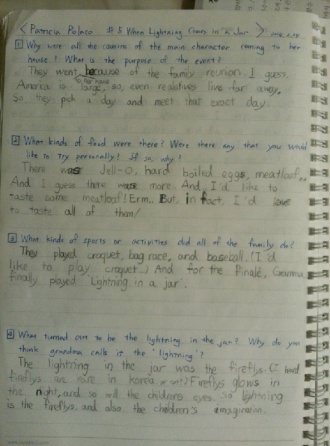 < Patricia Polaco #5 When Lightning Comes in a Jar >
1 Why were all the cousins of the main character coming to her
house? What is the purpose of the event?
They went because of the family reunion I guess.
America is large, so, even relatives live far away.
So they pick a day and meet that exact day.
2 What kinds of food were there? Were there any that you would
like to try personally? If so, why?
There was Jell-O, hard boiled eggs, meatloaf..
And I guess there was more. And I'd like to
taste some meatloaf! Erm.. But, in fact, I'd love
to taste all of them!
3 What kinds of sports or activities did all of the family do?
They played croquet, bag race, and baseball. (I'd
like to play croquet..) And for the Finale, Gramma
finally played Lightning in a jar.
4 What turned out to be the lightning in the jar? Why do you
think grandma calls it the "lightning"?
The lightning in the jar was the fireflys. (I heard
fireflys are rare in Korea) Fireflys glows in
the night, and so will the childrens eyes. So lightning
is the fireflys, and also the children's imagination.